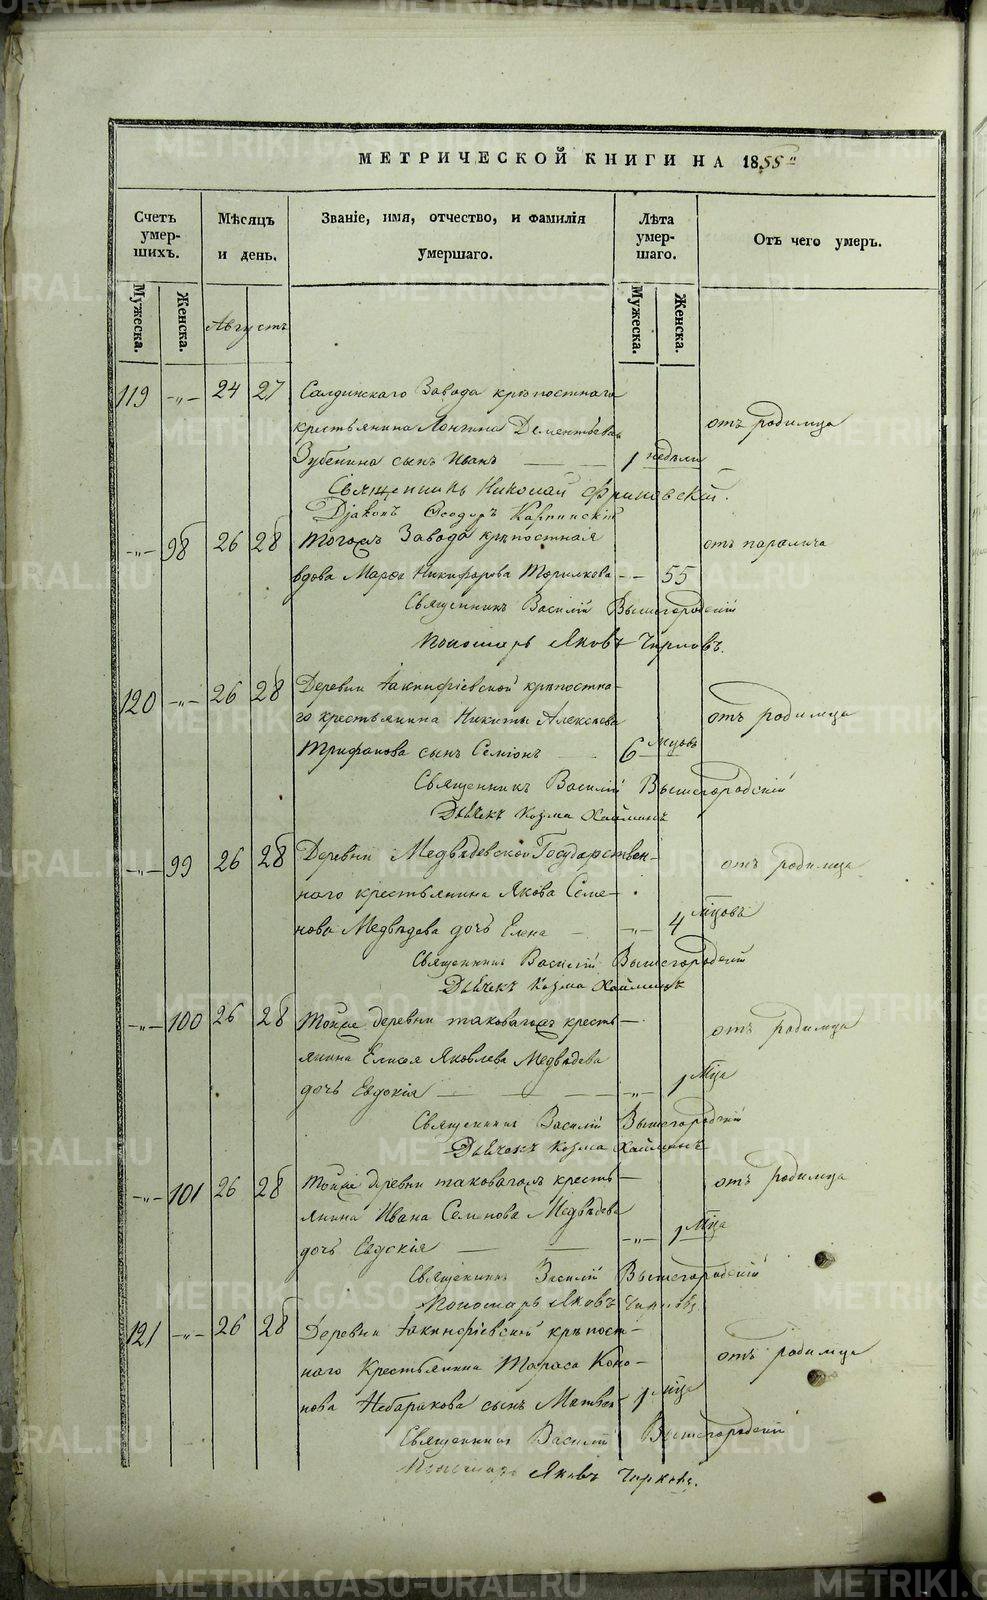 МЕТРИЧЕСКОЙ КНИГИ НА 1855 "
Счетъ умер-шихъ.
Мѣсяцъ и день.
Званіе, имя, отчество, и фамилія умершаго.
Лѣта умер-шаго.
Отъ чего умеръ.
Мужеска. Женска. Мужеска. Женска.
Августъ
119 -„- 24 27 Салдинскаго Завода крѣпостнаго
крестьянина Лонгина Дементьева отъ родимца
Зубенина сынъ Иванъ 1 недѣли
Священникъ Николай Флиовскій.
Дьяконъ Ѳеодоръ Карпинскій
-„- 98 26 28 Тогожъ Завода крѣпостная отъ паралича
вдова Марѳа Никифорова Торилкова - - 55
Священникъ Василій Вышегородскій
Пономарь Яковъ Чирковъ.
120 -„- 26 28 Деревни Іакинфіевской крѣпостна-
го крестьянина Никиты Алексѣева отъ родимца
Трифанова сынъ Семіонъ 6 мцовъ
Священникъ Василій Вышегородскій
Дьячекъ Козма Хайминъ
-„- 99 26 28 Деревни Медвѣдевской Государствен- отъ родимца
наго крестьянина Якова Семе-
нова Медвѣдева дочь Елена -„- 4 мцовъ
Священникъ Василій Вышегородскій
Дьячекъ Козма Хайминъ
-„- 100 26 28 Тойже деревни таковагожъ кресть- отъ родимца
янина Елисея Яковлева Медвѣдева
дочь Евдокія -„- 1 Мца
Священникъ Василій Вышегородскій
Дьячекъ Козма Хайминъ
-„- 101 26 28 Тойже деревни таковагожъ кресть- отъ родимца
янина Ивана Семенова Медвѣдева
дочь Евдокія -„- 1 Мца
Священникъ Василій Вышегородскій
Пономарь Яковъ Чирковъ.
121 -„- 26 28 Деревни Іакинфіевской крѣпост-
наго Крестьянина Тараса Коно- отъ родимца
нова Небаракова сынъ Матвей 1 мца
Священникъ Василій Вышегородскій
Пономарь Яковъ Чирковъ.
METRIKI.GASO-URAL.RU